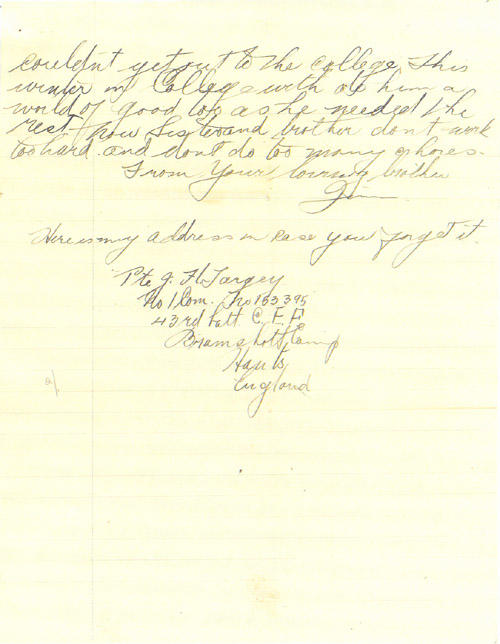 couldn't get out to the college. This
winter in College with do him a
world of good too as he needed the
rest. Now Sister and brother don't work
too hard. and don't do too many chores.
From Your loving brother
Jim
Here is my address in case you forget it.
Pte J. H. Targey
No 1 Com. No 153395
43rd Batt. C. E. F.
Bramshott Camp
Hants
England